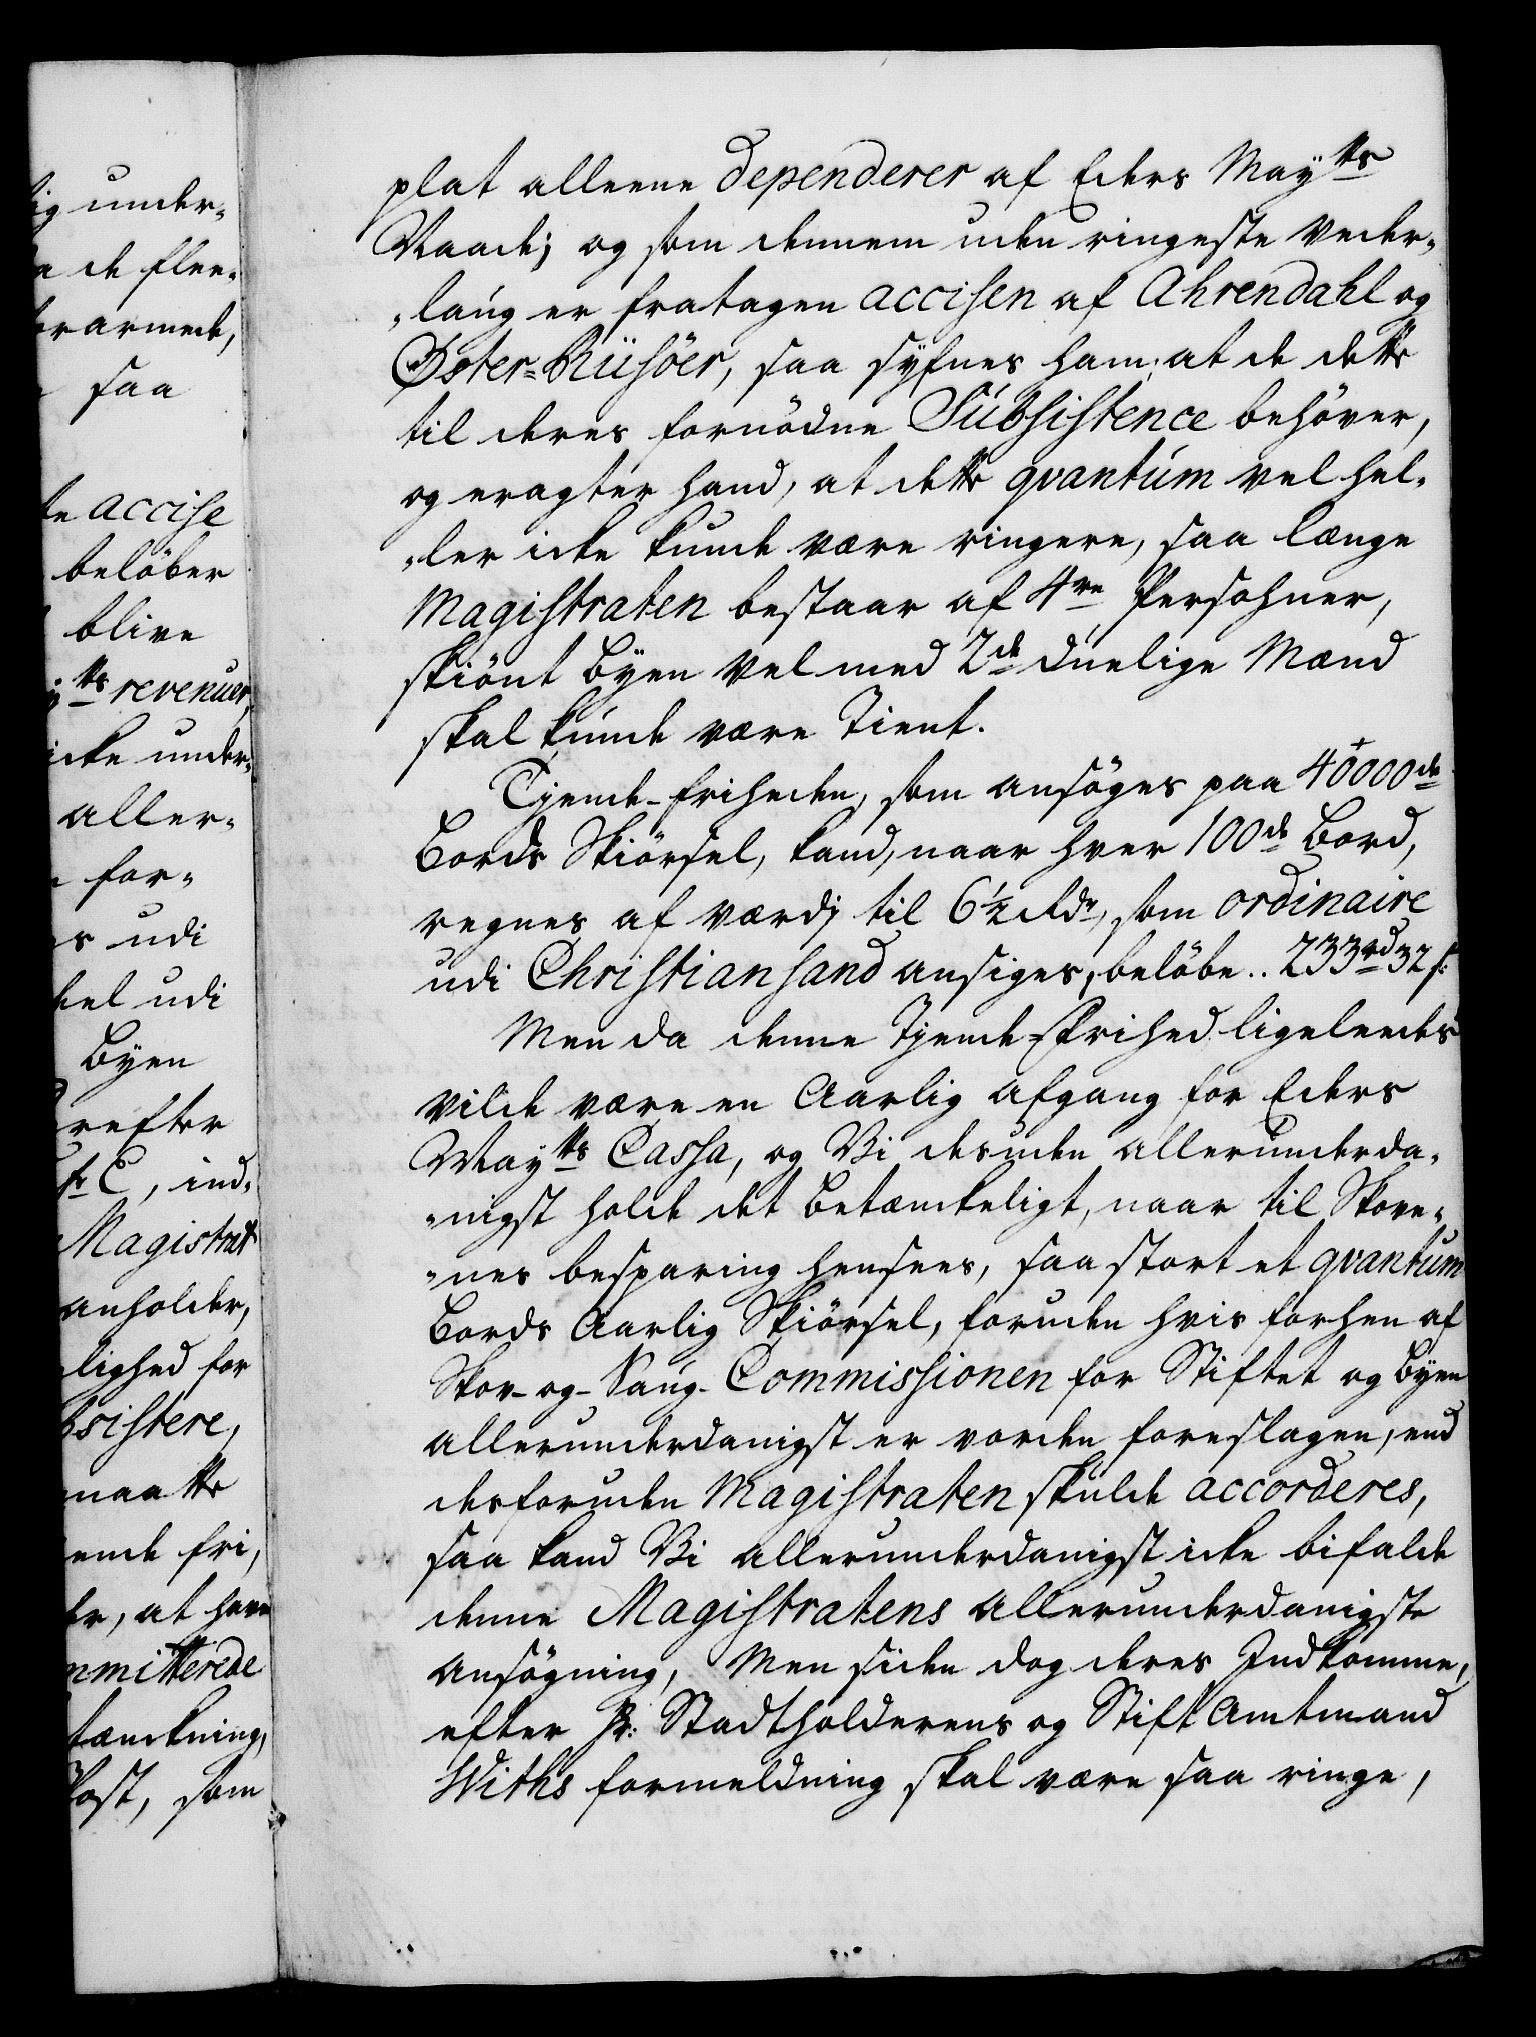 ig under-
de flee-
rarmede,
saa
te accise
beløber
blive
tts revenuer,
icke under-
aller-
for-
s udi
kel udi
Byen
refter
C, ind-
Magistrat
anholder,
lighed for
sistere,
maatte
ende fri,
er, at have
mmitterede
tænckning,
Post, som
plat alleene dependerer af Eders Maytts
Naade; og som dennem uden ringeste veder-
„laug er fratagen accisen af Ahrendahl og
Øster=Riisöer, saa syfnes ham, at de dette
til deres fornødne Subsistence behöver,
og eragter hand, at dette qvantum vel hel-
„ler icke kunde være ringere, saa længe
Magistraten bestaar af 4re Persohner,
skiönt Byen vel med 2de duelige Mænd
skal kunde være tient.
Tjende-friheden, som ansöges paa 40000de
Bords Skiörsel, kand, naar hver 100de Bord,
regnes af værdj til 6½ Rdr, som ordinaire
udi Christiansand ansiges, belöbe .. 233rd 32 s:
Men da denne Tjende-Frihed ligeleedes
vilde være en Aarlig afgang for Eders
Maytts Cassa, og Vi desuden allerunderda-
„nigst holde det betænckeligt, naar til Skove-
„nes besparing hensees, saa stort et qvantum
Bords Aarlig Skiörsel, foruden hvis forhen af
Skov- og Saug-Commissionen for Stiftet og Byen
allerunderdanigst er vorden foreslagen, end
desforuden Magistraten skulde accorderes,
saa kand Vi allerunderdanigst icke bifalde
denne Magistratens allerunderdanigste
Ansögning, Men siden dog deres Indkomme,
efter Hr: Stadtholderens og Stift Amtmand
Withs formeldning skal være saa ringe,